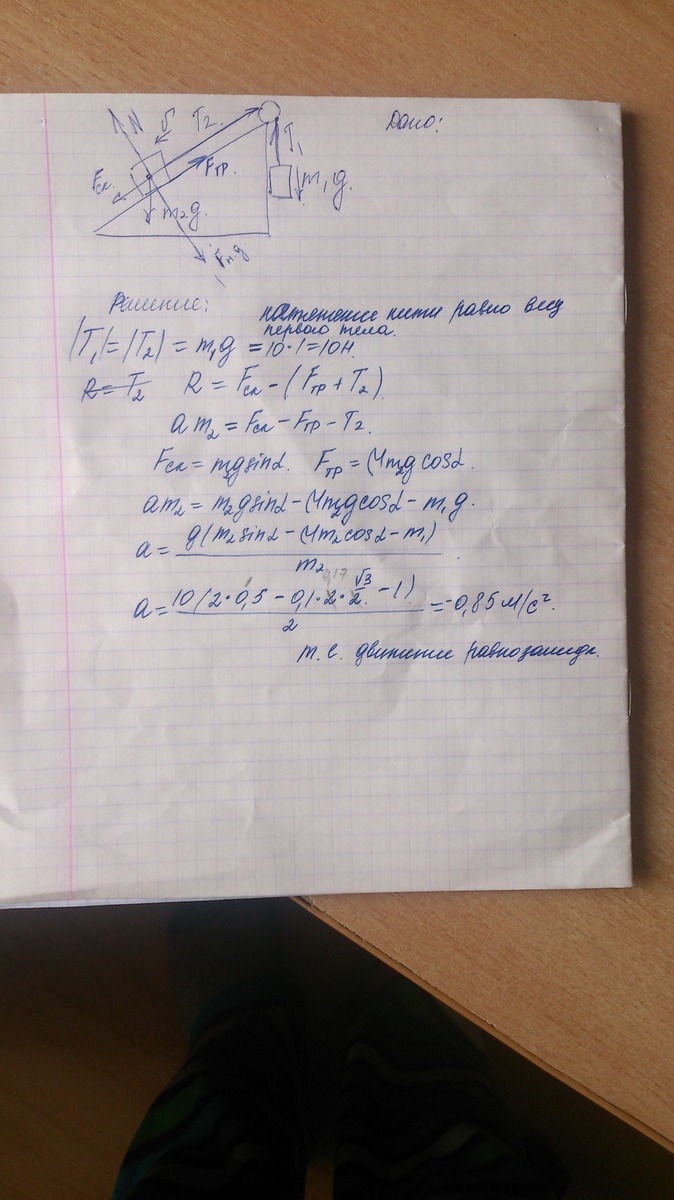 Дано:
N
T₂
T₁
Fск.
Fтр.
m₁g.
m₂g.
Решение:
натяжение нити равно весу
первого тела.
|T₁|=|T₂| = m₁g = 10·1=10Н.
R=T₂ R = Fск - (Fтр + T₂)
am₂ = Fск - Fтр - T₂.
Fск = m₂g sinα. Fтр = μm₂g cosα.
am₂ = m₂g sinα - μm₂g cosα - m₁g.
a = g(m₂ sinα - μm₂ cosα - m₁) / m₂.
a = 10(2·0,5 - 0,1·2·√3/2 - 1) / 2 = -0,85 м/с².
т.е. движение равнозамедл.